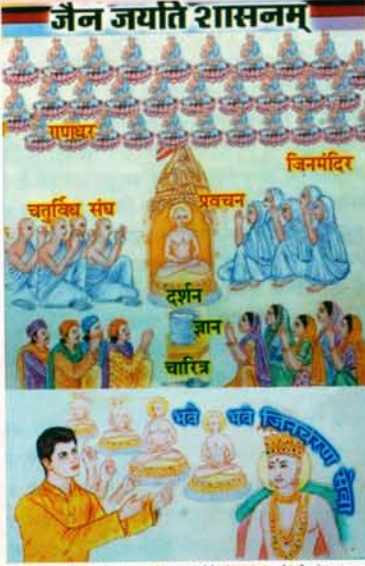 जैन जयति शासनम्
गणधर
जिनमंदिर
चतुर्विध संघ
प्रवचन
दर्शन
ज्ञान
चारित्र
भवे भवे जिनचरण सेवा